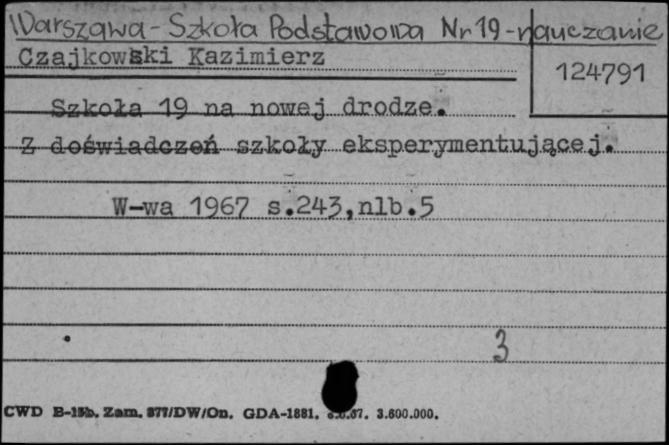 Warszawa - Szkoła Podstawowa Nr 19 - nauczanie
Czajkowski Kazimierz
124791
Szkoła 19 na nowej drodze.
Z doświadczeń szkoły eksperymentującej.
W-wa 1967 s.243,nlb.5
3
CWD B-15b. Zam. 877/DW/On. GDA-1881. 6.67. 3.600.000.